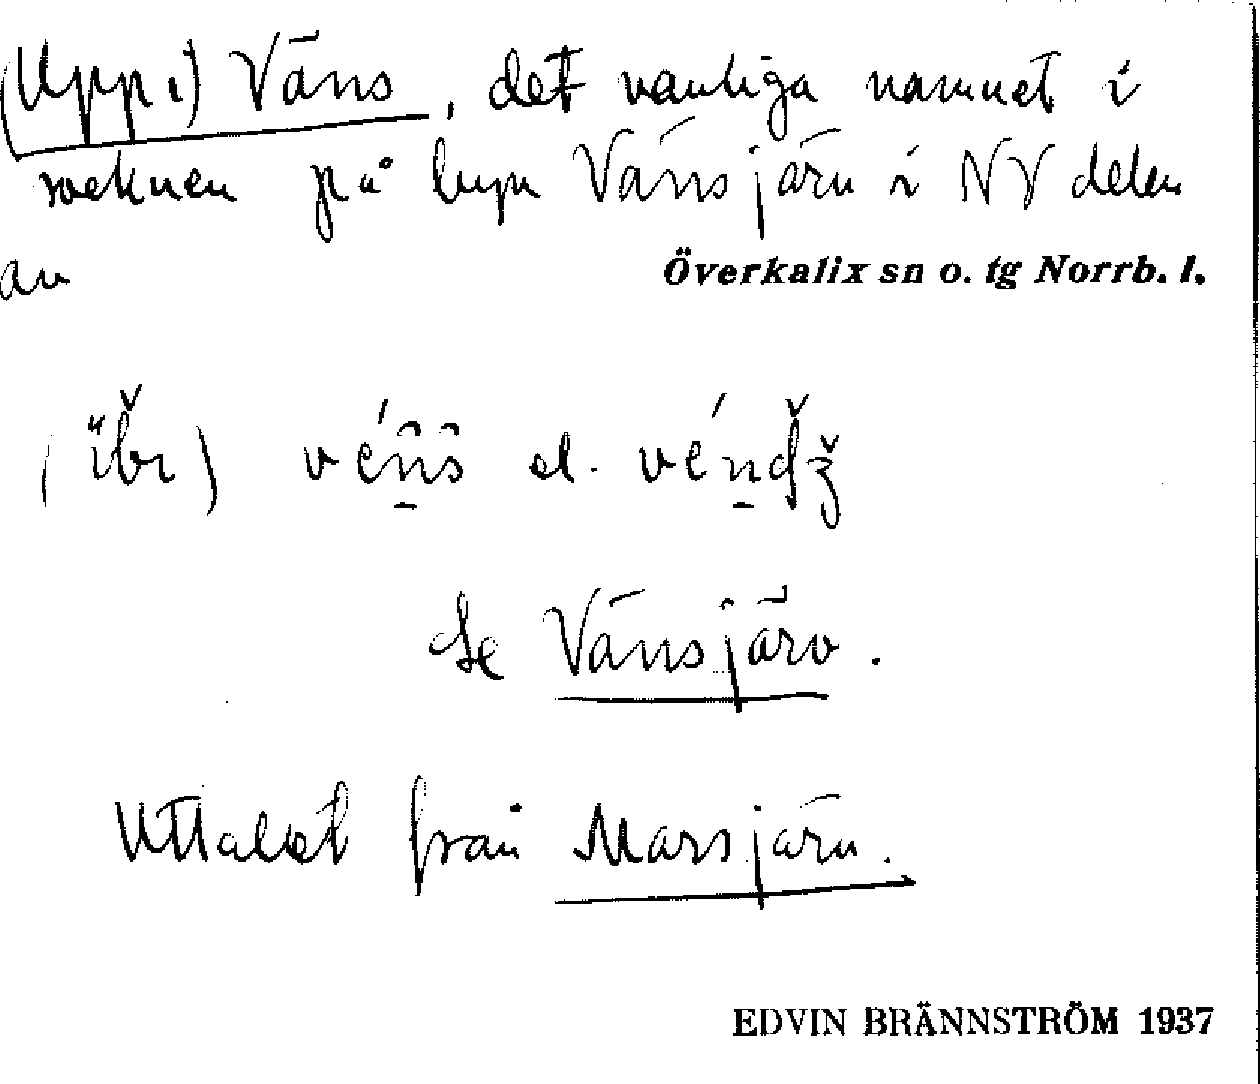 (Uppi) Väns, det vanliga namnet i
socknen på byn Vänsjärv i NV delen
av Överkalix sn o. tg Norrb. l.
el.
Se Vänsjärv.
Uttalet från Marsjärv.
EDVIN BRÄNNSTRÖM 1937